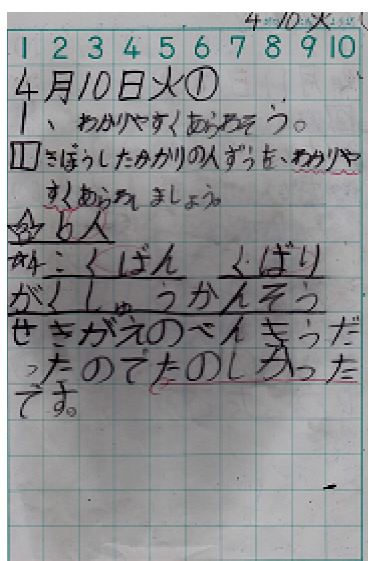 4 10 火
1 2 3 4 5 6 7 8 9 10
4月10日火①
1、わかりやすくあらわそう。
1 きぼうしたかかりの人ずうを、わかりや
すくあらわしましょう。
6人
4こくばん くばり
がくしゅうかんそう
せきがえのべんきょうだ
ったのでたのしかった
です。